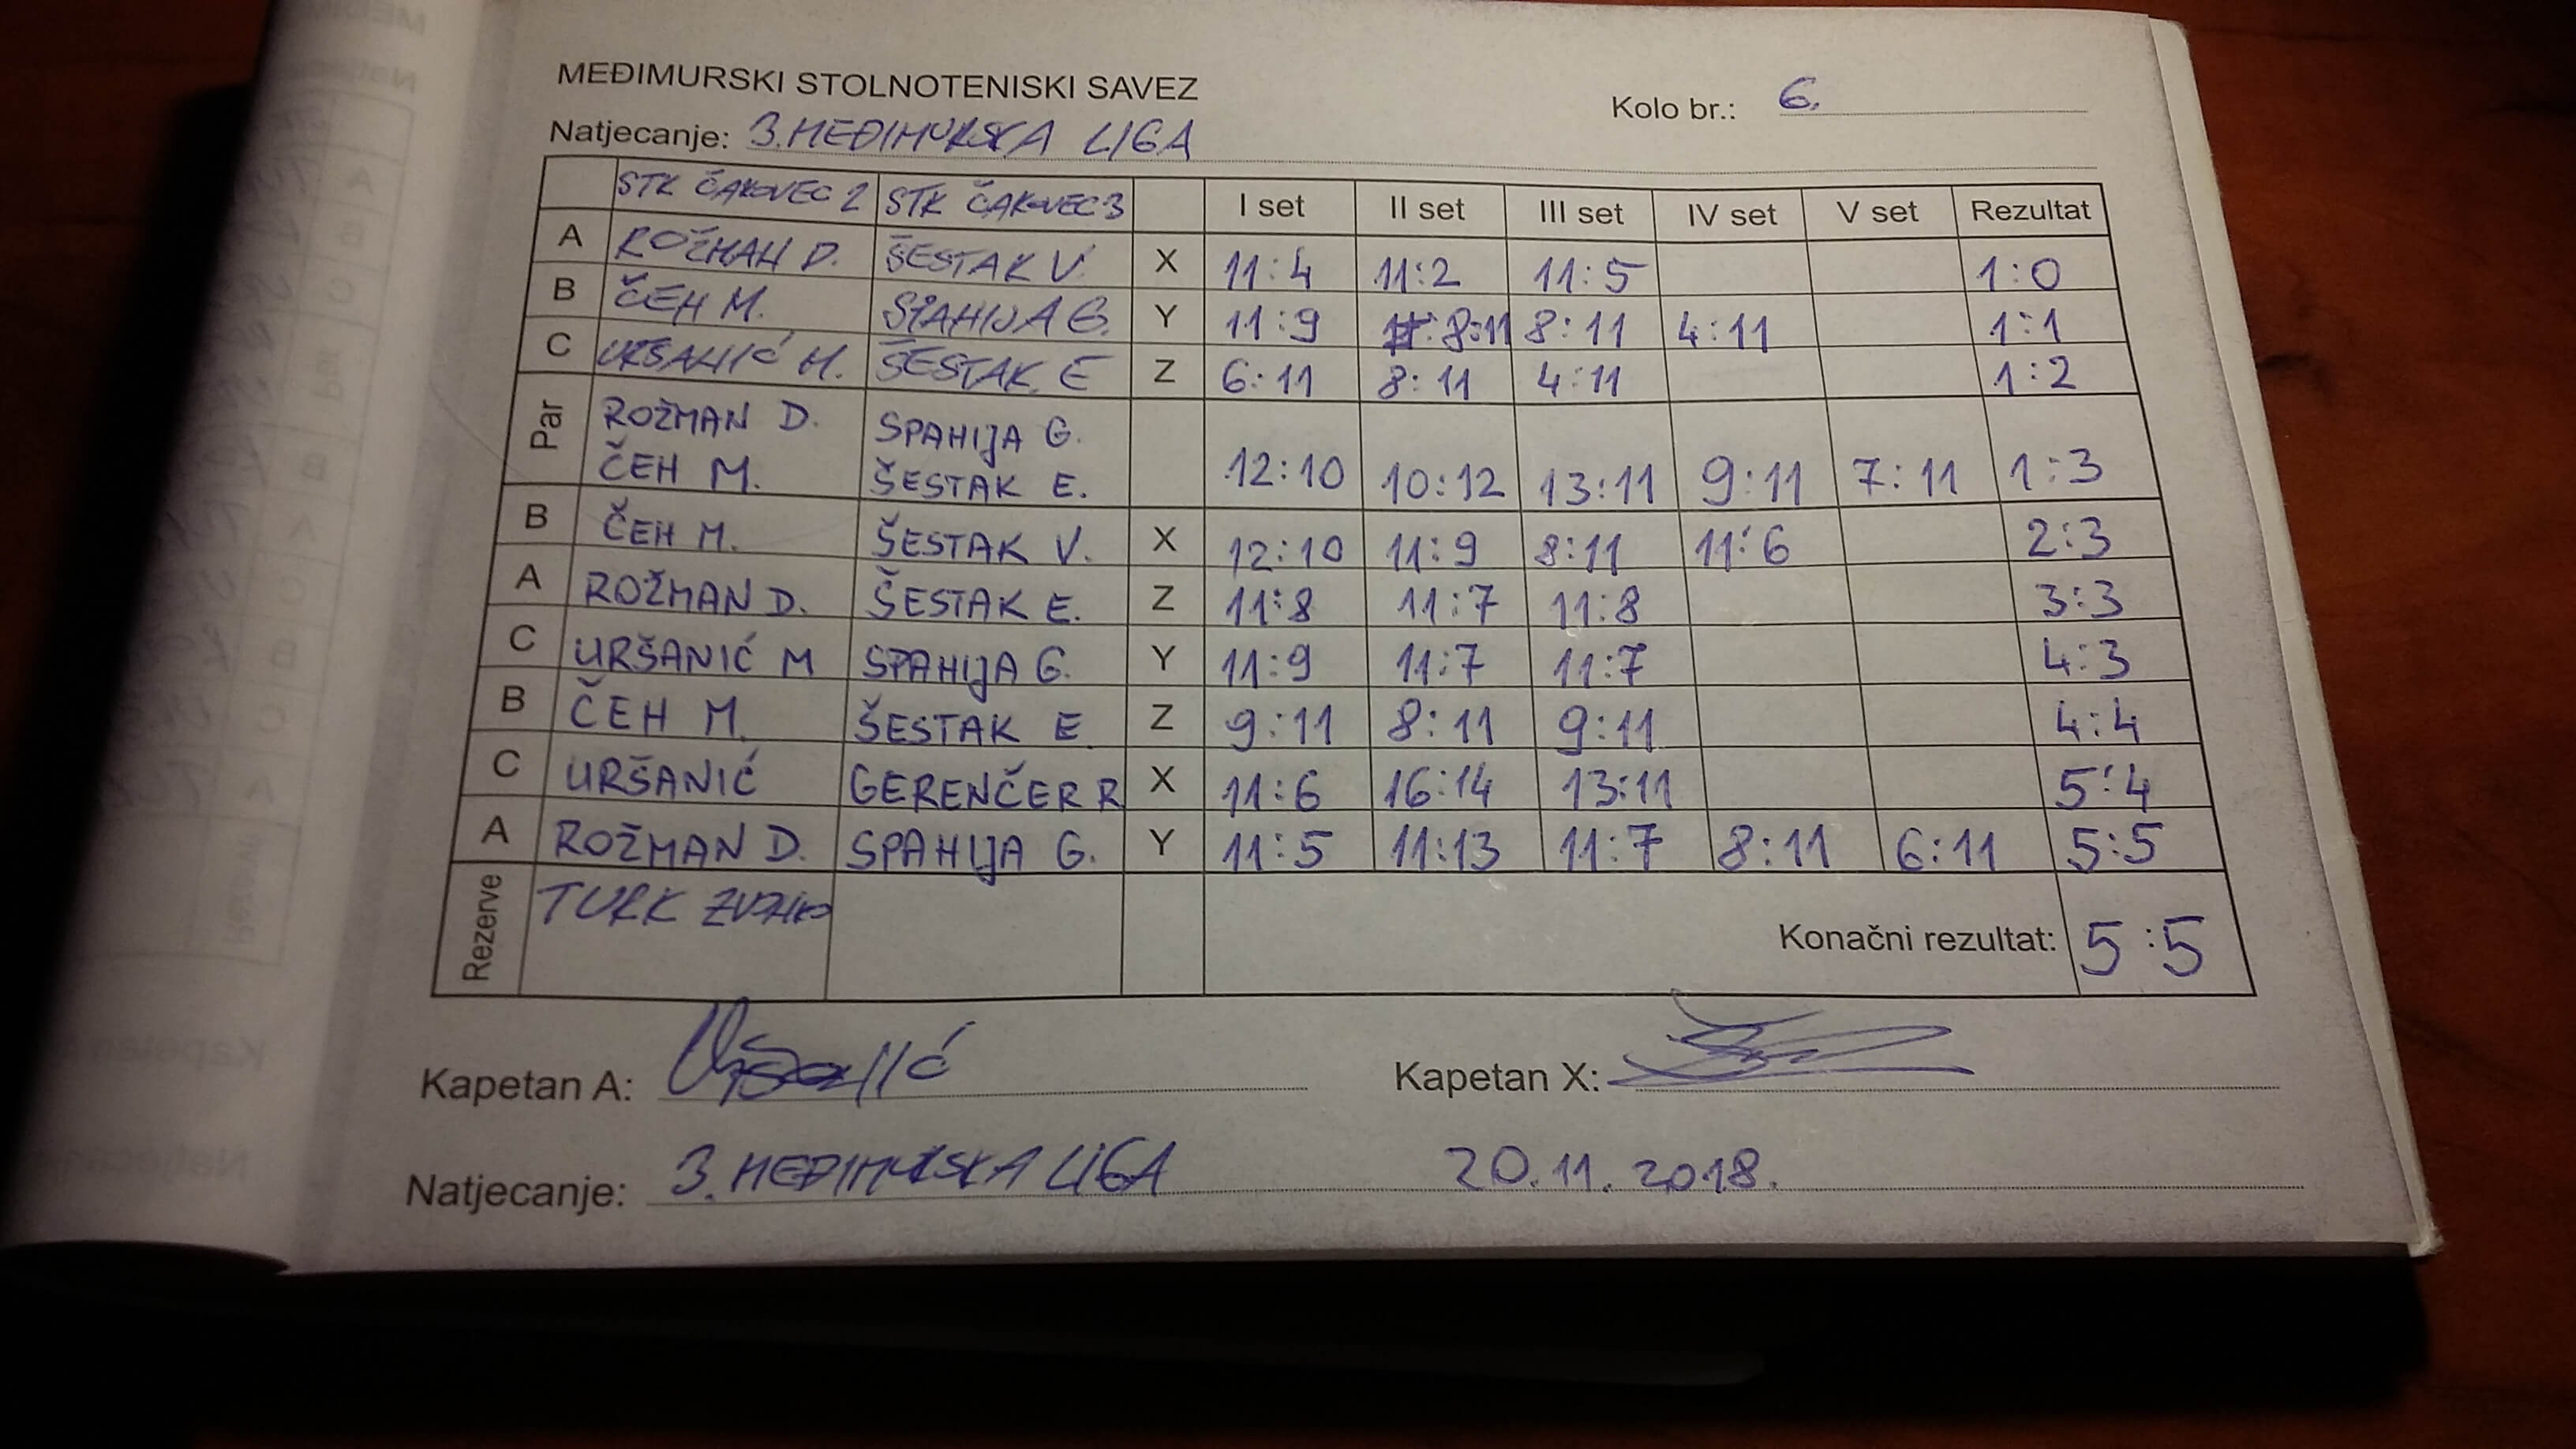 MEĐIMURSKI STOLNOTENISKI SAVEZ
Kolo br.: 6.
Natjecanje: 3. MEĐIMURSKA LIGA
STK ČAKOVEC 2 STK ČAKOVEC 3 I set II set III set IV set V set Rezultat
A ROŽMAN D. ŠESTAK V. X 11:4 11:2 11:5 1:0
B ČEH M. SPAHIJA G. Y 11:9 8:11 8:11 4:11 1:1
C URŠANIĆ M. ŠESTAK E Z 6:11 8:11 4:11 1:2
Par ROŽMAN D. SPAHIJA G.
ČEH M. ŠESTAK E. 12:10 10:12 13:11 9:11 7:11 1:3
B ČEH M. ŠESTAK V. X 12:10 11:9 8:11 11:6 2:3
A ROŽMAN D. ŠESTAK E. Z 11:8 11:7 11:8 3:3
C URŠANIĆ M SPAHIJA G. Y 11:9 11:7 11:7 4:3
B ČEH M. ŠESTAK E Z 9:11 8:11 9:11 4:4
C URŠANIĆ GERENČER R X 11:6 16:14 13:11 5:4
A ROŽMAN D. SPAHIJA G. Y 11:5 11:13 11:7 8:11 6:11 5:5
Rezerve TURK Konačni rezultat: 5:5
Kapetan A: Uršanić Kapetan X:
Natjecanje: 3. MEĐIMURSKA LIGA 20.11.2018.